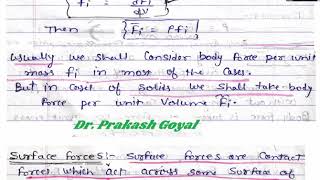 {fi = dFi / dV
Then {F̄i = ρfi}
Usually we shall Consider body force per unit
mass fi in most of the Cases.
But in case of solids we shall take body
force per unit Volume Fi.
Dr. Prakash Goyal
Surface forces:- Surface forces are Contact
forces which act across some Surface of